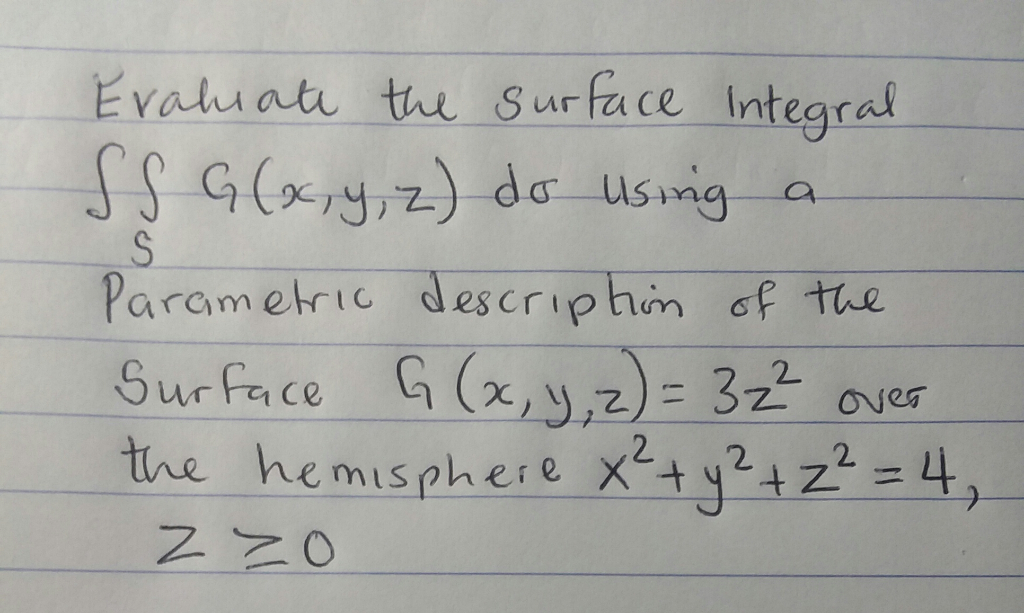 Evaluate the surface Integral
∫∫ G(x,y,z) dσ using a
S
Parametric description of the
Surface G(x,y,z) = 3z² over
the hemisphere x²+y²+z² = 4,
z ≥ 0